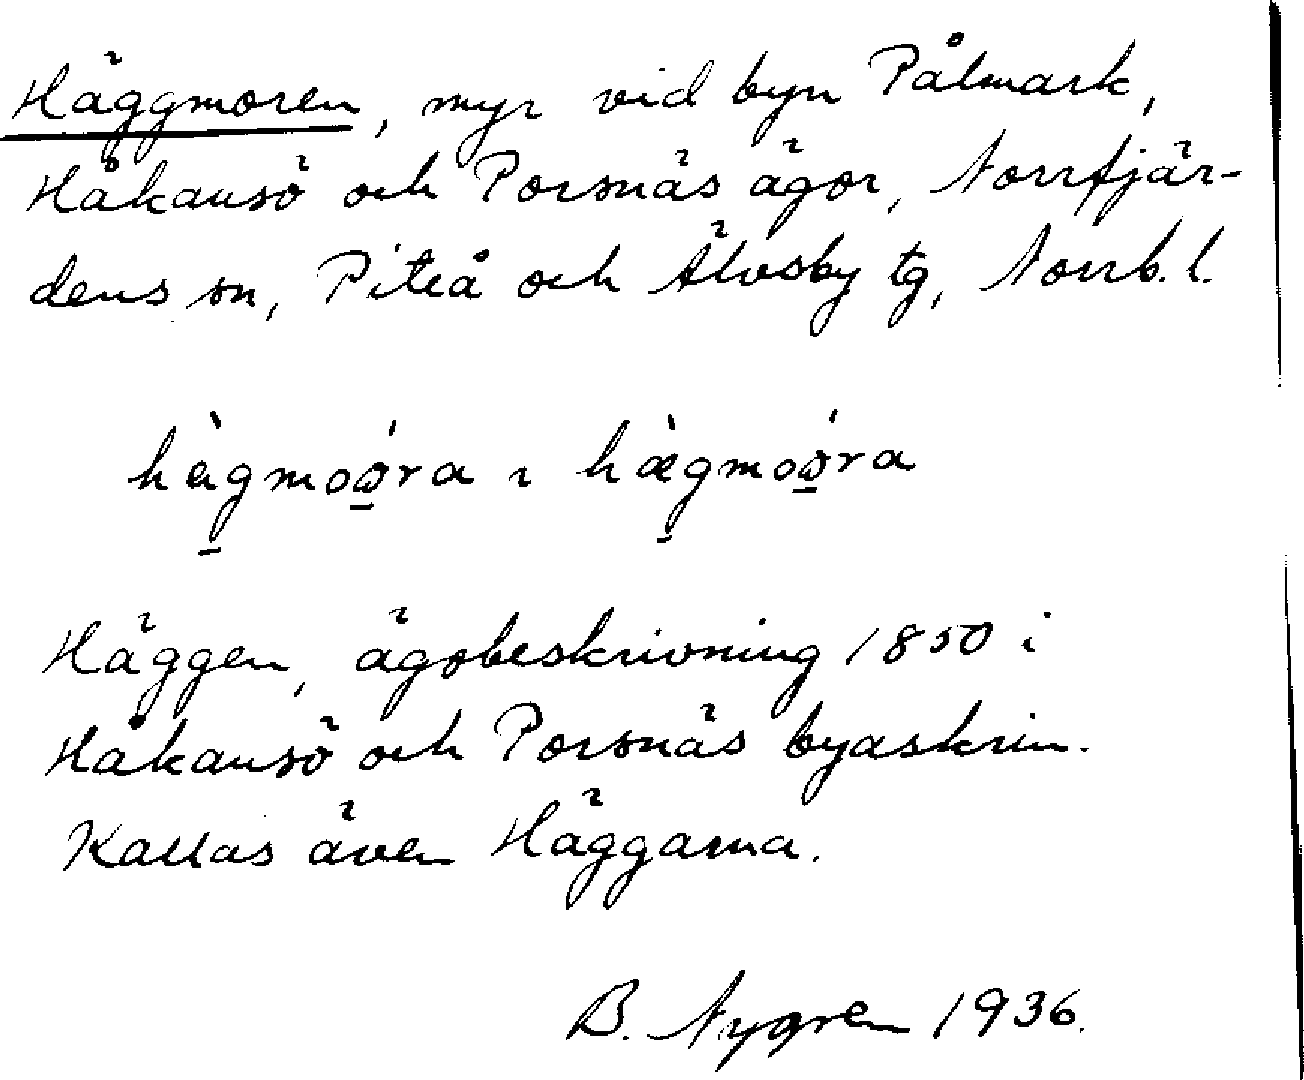 Häggmoren, myr vid byn Pålmark,
Håkansö och Porsnäs ägor, Norrfjär-
dens sn, Piteå och Älvsby tg, Norrb. l.
hä̀gmoǿra ~ hæ̀gmoǿra
Häggen, ägobeskrivning 1850 i
Håkansö och Porsnäs byaskrin.
Kallas även Häggarna.
B. Nygren 1936.